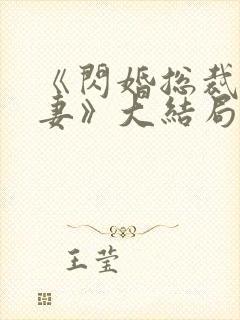 《閃婚总裁
妻》大結局
王莹